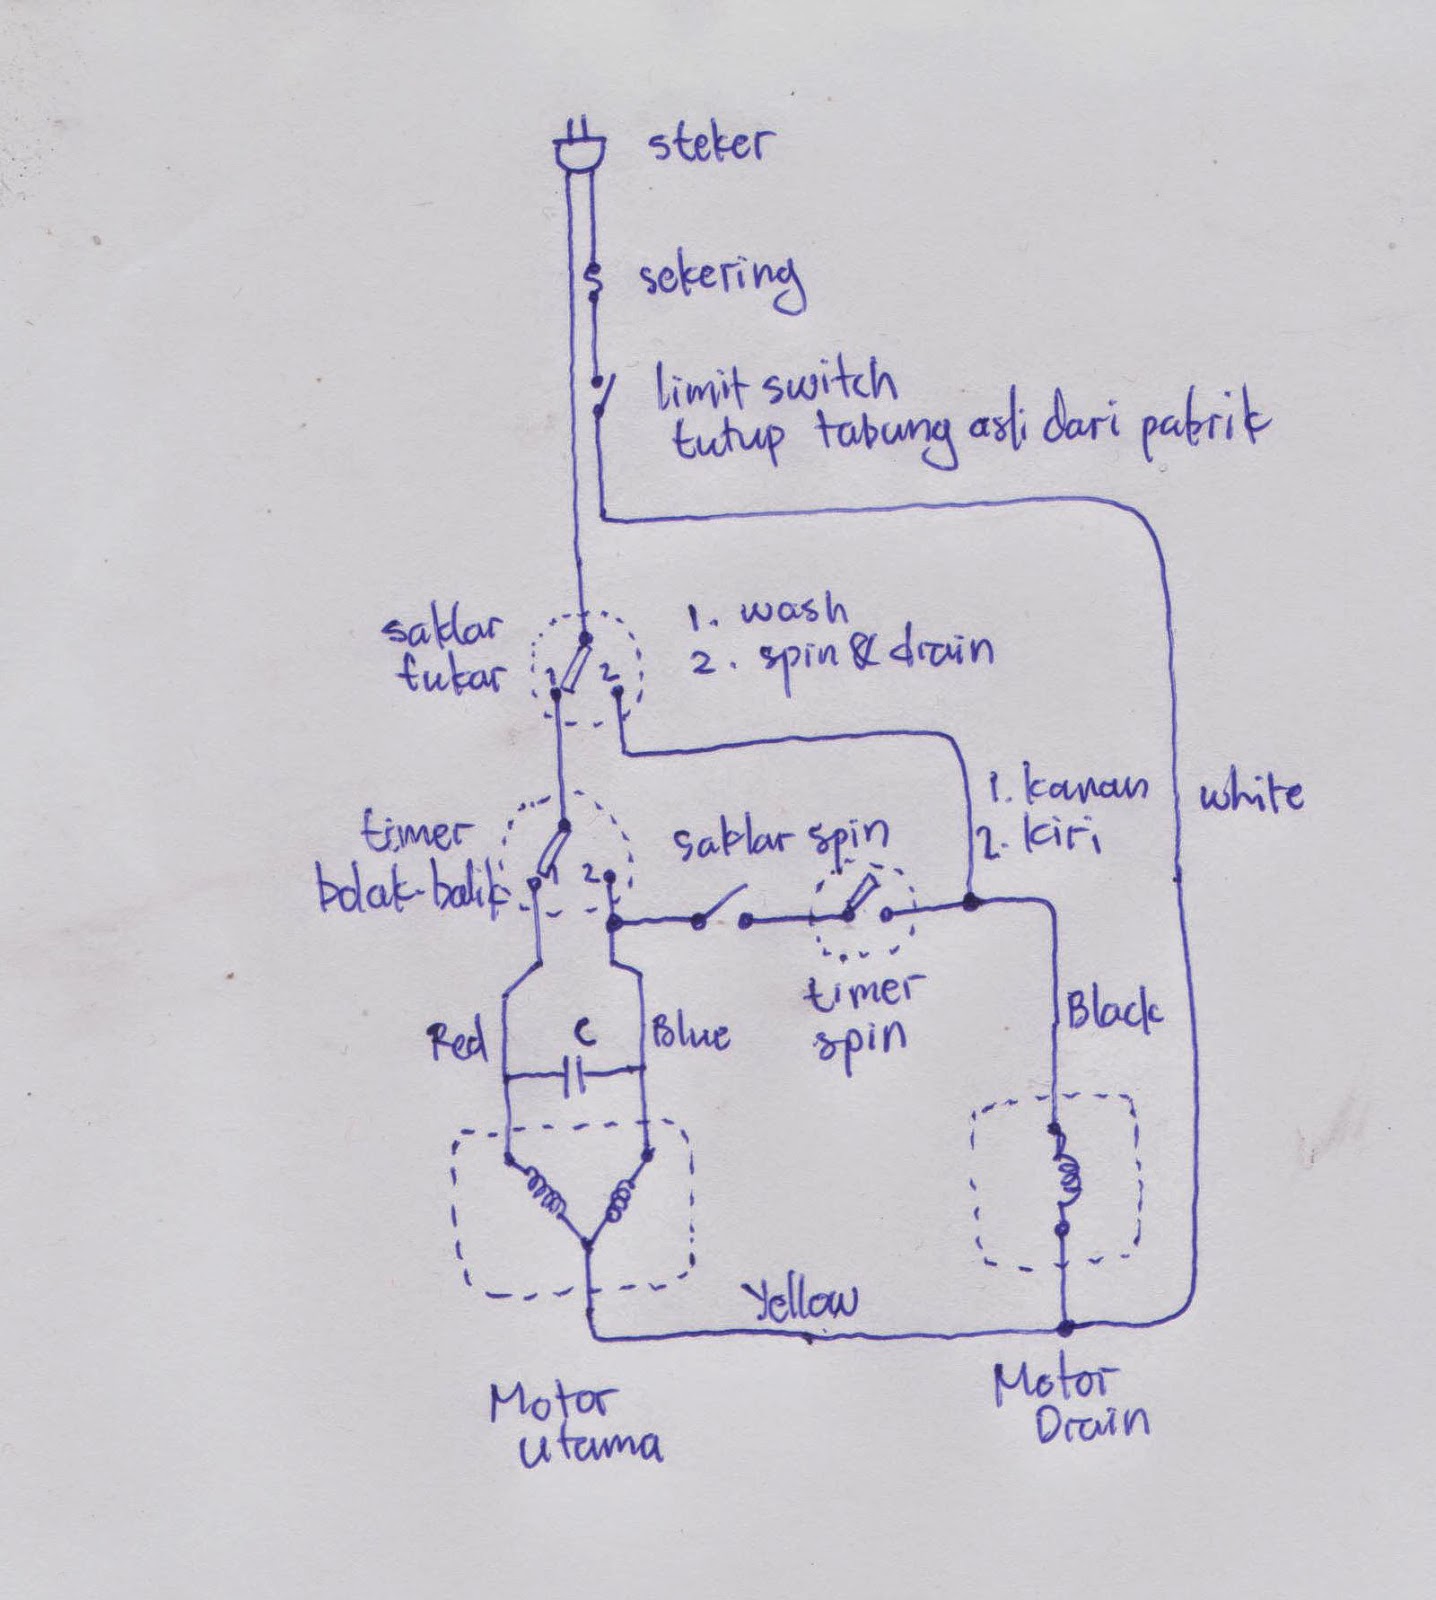 steker
sekering
limit switch
tutup tabung asli dari pabrik
saklar
tukar
1. wash
2. spin & drain
1 2
1. kanan
2. kiri
white
timer
bolak-balik
1 2
saklar spin
timer
spin
Red
C
Blue
Black
Yellow
Motor
Utama
Motor
Drain